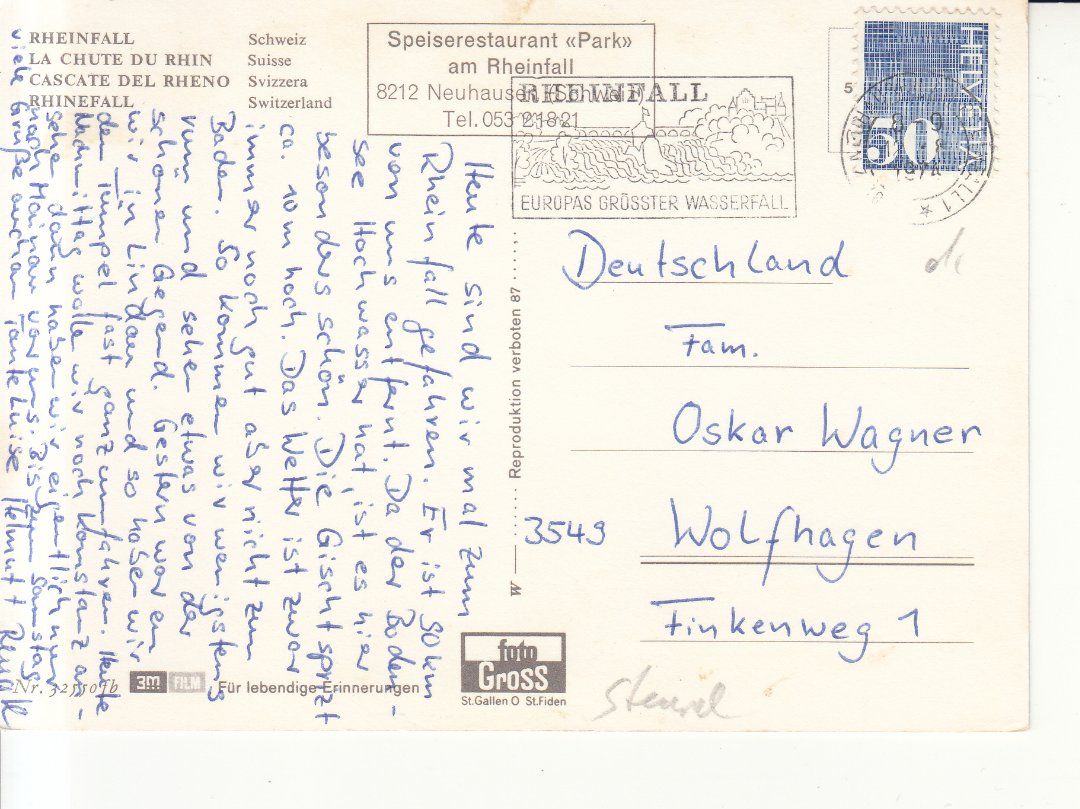 RHEINFALL Schweiz
LA CHUTE DU RHIN Suisse
CASCATE DEL RHENO Svizzera
RHINEFALL Switzerland
Speiserestaurant «Park»
am Rheinfall
8212 Neuhausen (Schweiz)
Tel. 053 2 18 21
RHEINFALL
EUROPAS GRÖSSTER WASSERFALL
HELVETIA
50
Heute sind wir mal zum
Rheinfall gefahren. Er ist 90 km
von uns entfernt. Da der Boden-
see Hochwasser hat, ist es hier
besonders schön. Die Gischt spritzt
ca. 10 m hoch. Das Wetter ist zwar
immer noch gut aber nicht zum
Baden. So kommen wir wenigstens
rum und sehen etwas von der
schönen Gegend. Gestern waren
wir in Lindau und so haben wir
den Tümpel fast ganz umfahren. Heute
Nachmittag wollen wir noch Konstanz an-
sehen dann haben wir eigentlich nur
noch Mainau vor uns. Bis zum Samstag
viele Grüße auch an Tante Luise Helmut + Renate
Deutschland
Fam.
Oskar Wagner
3549 Wolfhagen
Finkenweg 1
W Reproduktion verboten 87
Nr. 325507b 3M FILM Für lebendige Erinnerungen
foto
Gross
St.Gallen O St.Fiden